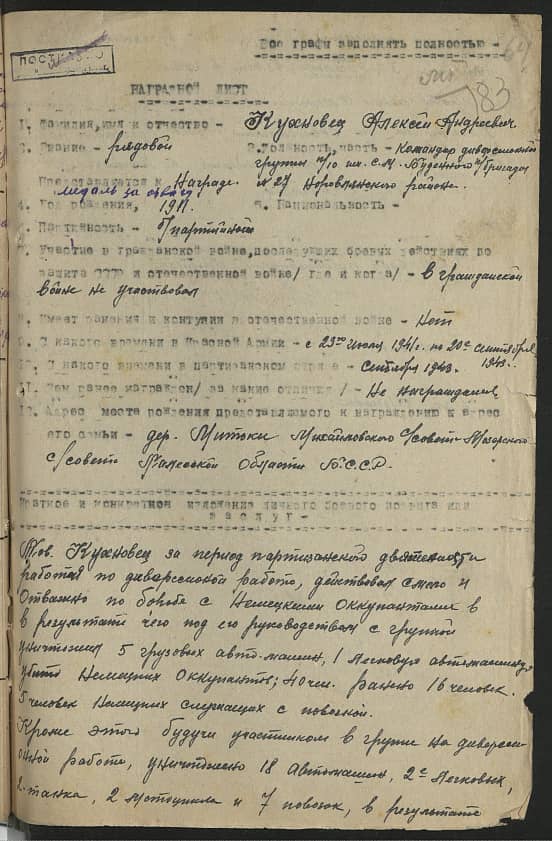 Все графы заполнять полностью -
64
183
НАГРАДНОЙ ЛИСТ
1. Фамилия, имя и отчество - Кухновец Алексей Андреевич
2. Звание - рядовой 3. Должность, часть - Командор диверсионной
группы п/о им. С.М. Буденного п/бригады
Представляется к Награде № 27 Наровлянского района.
медаль за отвагу
4. Год рождения, 1911. 5. Национальность -
6. Партийность - б/партийный
7. Участие в гражданской войне, последующих боевых действиях по
защите СССР и отечественной войне/ где и когда/ - в гражданской
войне не участвовал
8. Имеет ранения и контузии в отечественной войне - Нет
9. С какого времени в Красной Армии - с 23го Июля 1941 г. по 20е сентября
1943г.
10. С какого времени в партизанском отряде - Сентября 1943.
11. Чем ранее награжден/ за какие отличия / - Не награждался
12. Адрес места рождения представляемого к награждению и адрес
его семьи - дер. Митоки Михайловского С/совета Мозырского
С/совета Полесской Области Б.С.С.Р.
Краткое и конкретное изложение личного боевого подвига или
заслуг -
Тов. Кухновец за период партизанского
работая по диверсионой работо, действовал смело и
Отважно по борьбе с Немецкими Оккупантами в
в результати чего под его руководством с группой
уничтожил 5 грузовых авто-машин, 1 легковую автомашину,
убито Немецких Оккупантов; 40 чел. ранено 16 человек.
5 человек Немецких служащих с повозкой.
Кроме этого будучи участником в групе на диверси-
онной работе, уничтожено 18 Автомашин, 2е Легковых,
2-танка, 2 мотоцикла и 7 повозок, в результате